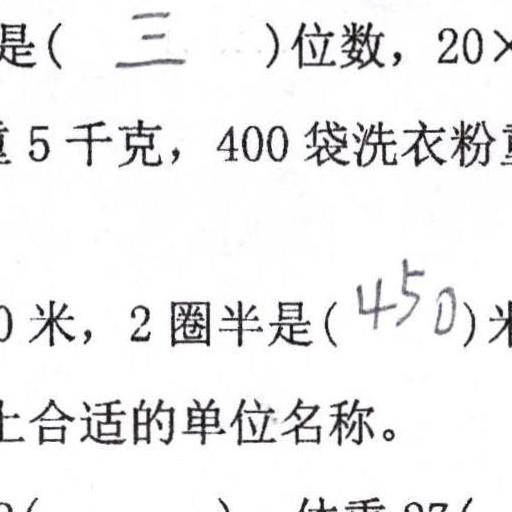 是( 三 )位数，20×
重 5 千克，400 袋洗衣粉重
0 米，2 圈半是( 450 )米
上合适的单位名称。
( ) 体重 37(